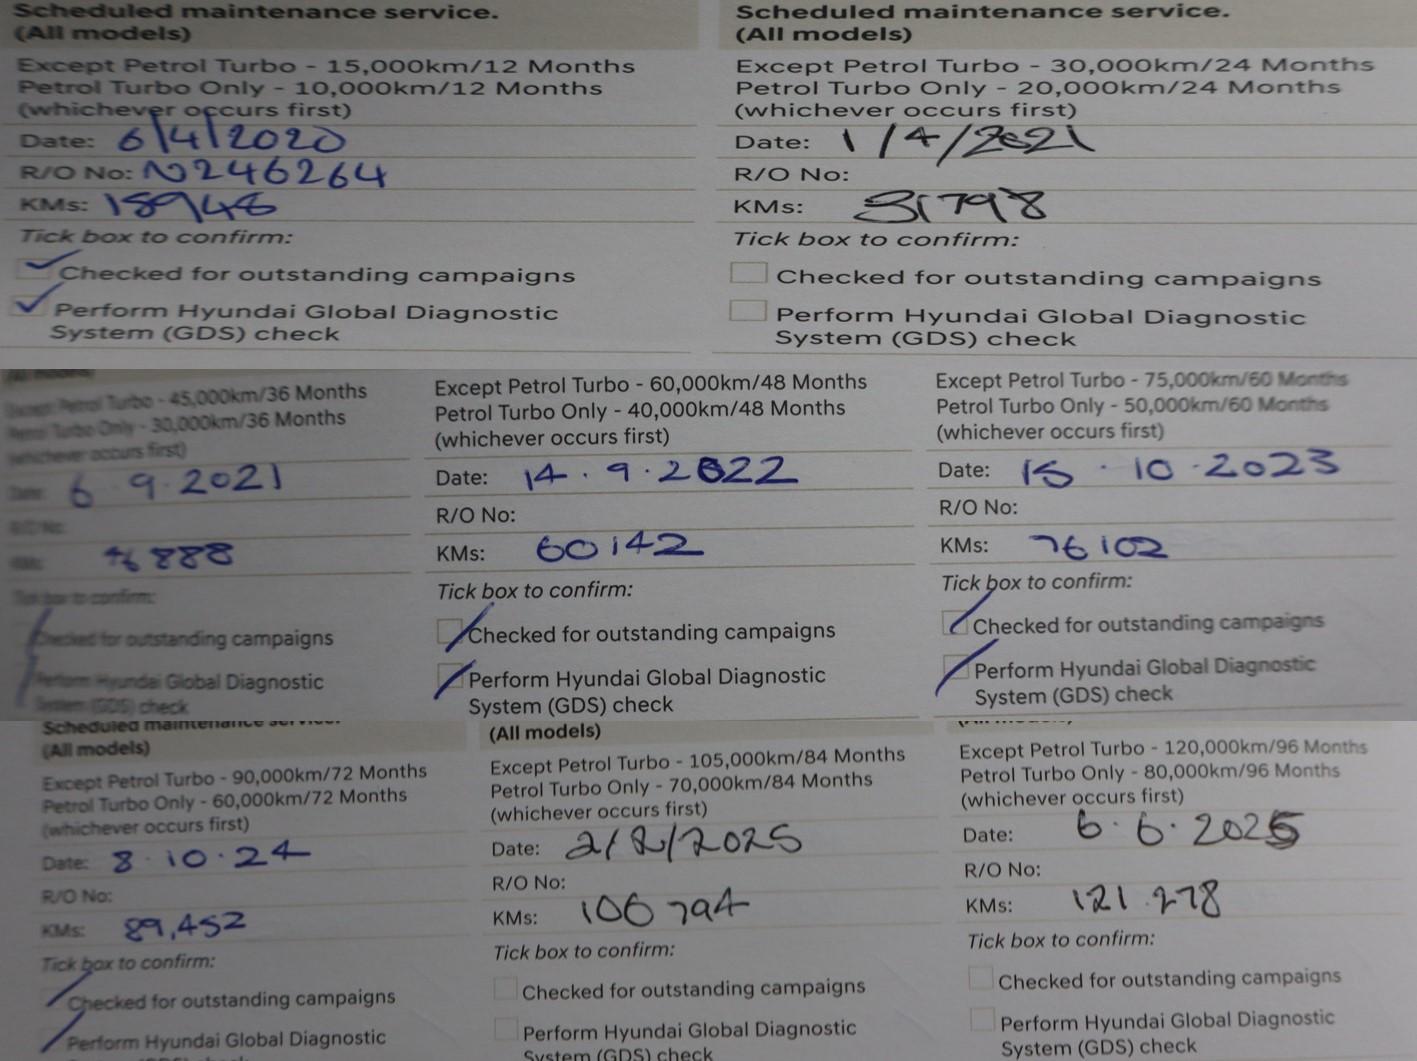 Scheduled maintenance service.
(All models)
Except Petrol Turbo - 15,000km/12 Months
Petrol Turbo Only - 10,000km/12 Months
(whichever occurs first)
Date: 6/4/2020
R/O No: N246264
KMs:
Tick box to confirm:
Checked for outstanding campaigns
Perform Hyundai Global Diagnostic
System (GDS) check
Scheduled maintenance service.
(All models)
Except Petrol Turbo - 30,000km/24 Months
Petrol Turbo Only - 20,000km/24 Months
(whichever occurs first)
Date: 1/4/2021
R/O No:
KMs: 31798
Tick box to confirm:
Checked for outstanding campaigns
Perform Hyundai Global Diagnostic
System (GDS) check
(All models)
Except Petrol Turbo - 45,000km/36 Months
Petrol Turbo Only - 30,000km/36 Months
(whichever occurs first)
Date: 6 9.2021
R/O No:
KMs: 46888
Tick box to confirm:
Checked for outstanding campaigns
Perform Hyundai Global Diagnostic
System (GDS) check
Except Petrol Turbo - 60,000km/48 Months
Petrol Turbo Only - 40,000km/48 Months
(whichever occurs first)
Date: 14.9.2022
R/O No:
KMs: 60142
Tick box to confirm:
Checked for outstanding campaigns
Perform Hyundai Global Diagnostic
System (GDS) check
Except Petrol Turbo - 75,000km/60 Months
Petrol Turbo Only - 50,000km/60 Months
(whichever occurs first)
Date: 15.10.2023
R/O No:
KMs: 76102
Tick box to confirm:
Checked for outstanding campaigns
Perform Hyundai Global Diagnostic
System (GDS) check
Scheduled maintenance service.
(All models)
Except Petrol Turbo - 90,000km/72 Months
Petrol Turbo Only - 60,000km/72 Months
(whichever occurs first)
Date: 8.10.24
R/O No:
KMs: 89,452
Tick box to confirm:
Checked for outstanding campaigns
Perform Hyundai Global Diagnostic
System (GDS) check
(All models)
Except Petrol Turbo - 105,000km/84 Months
Petrol Turbo Only - 70,000km/84 Months
(whichever occurs first)
Date: 2/2/2025
R/O No:
KMs: 106794
Tick box to confirm:
Checked for outstanding campaigns
Perform Hyundai Global Diagnostic
System (GDS) check
(All models)
Except Petrol Turbo - 120,000km/96 Months
Petrol Turbo Only - 80,000km/96 Months
(whichever occurs first)
Date: 6.6.2025
R/O No:
KMs: 121.278
Tick box to confirm:
Checked for outstanding campaigns
Perform Hyundai Global Diagnostic
System (GDS) check